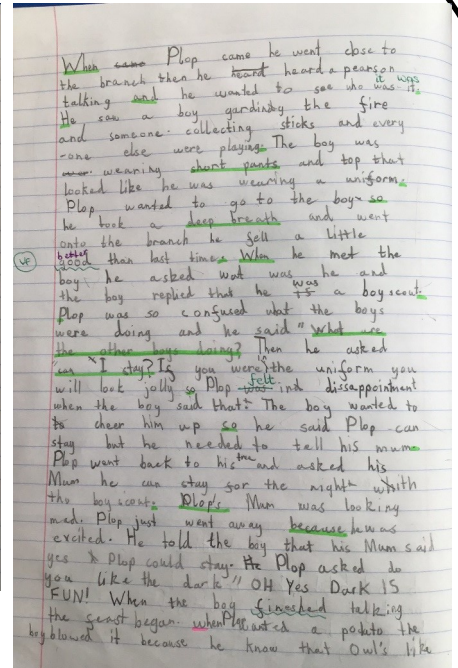 When came Plop came he went close to
the branch then he heard heard a pearson
talking and he wanted to see who was it. it was
He saw a boy gardindg the fire
and someone. collecting sticks and every
-one else were playing. The boy was
wearning short pants and top that
looked like he was wearing a uniform.
Plop wanted to go to the boy so
he took a deep breath and went
onto the branch he fell a little
better good than last time. When he met the
VF
boy he asked wat was he and
the boy replied that he was is a boyscout.
Plop was so confused what the boys
were doing and he said "What are
the other boys doing? Then he asked
"can "I stay? If you were in the uniform you
will look jolly so Plop was felt in d dissappointment
when the boy said that. The boy wanted to
to cheer him up so he said Plop can
stay but he needed to tell his mum
Plop went back to his tree and asked his
Mum he can stay for the night whith
the boy scout. Plop's Mum was looking
med. Plop just went away because he was
excited. He told the boy that his Mum said
yes Plop could stay. He Plop asked do
you like the dark" OH Yes DaRK IS
FUN! When the boy finished talking
the feast began. when Plop wanted a potato the
boy blowed it because he know that Owl's like